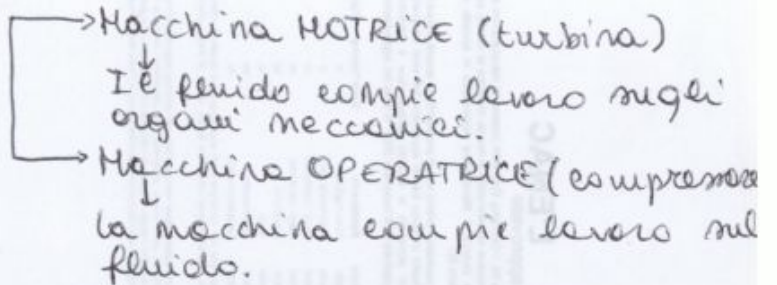 Macchina MOTRICE (turbina)
Il fluido compie lavoro sugli
organi meccanici.
Macchina OPERATRICE (compressore
la macchina compie lavoro sul
fluido.